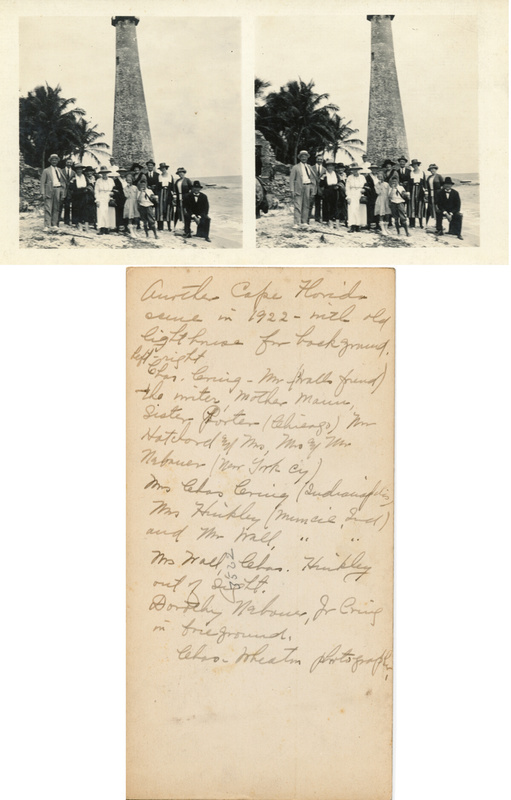 Another Cape Florida
scene in 1922 - with old
lighthouse for background.
left-right
Chas. Cring - Mr (Walls friend)
the writer, Mother Mann,
Sister Porter (Chicago) Mr
& Mrs, Mrs & Mr
Nabauer (New York City)
Mrs Chas Cring (Indianapolis,
Mrs Hinkley (Muncie Ind)
and Mr Wall, " "
Mrs Wall, Chas. Hinkley
out of sight.
Dorothy Nabauer, Jr Cring
in foreground.
Chas. Wheaton photographer.